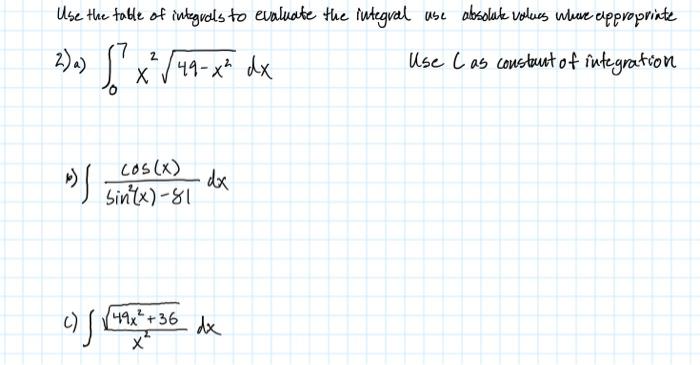 Use the table of integrals to evaluate the integral use absolute values where appropriate
2) a) ∫₀⁷ x² √(49-x²) dx Use C as constant of integration
b) ∫ cos(x) / (sin²(x)-81) dx
c) ∫ √(49x²+36) / x² dx